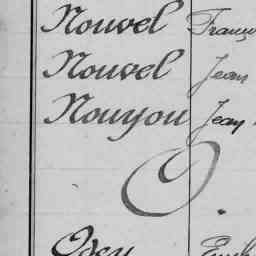 Nouvel Franç
Nouvel Jean
Nouyou Jean
O.